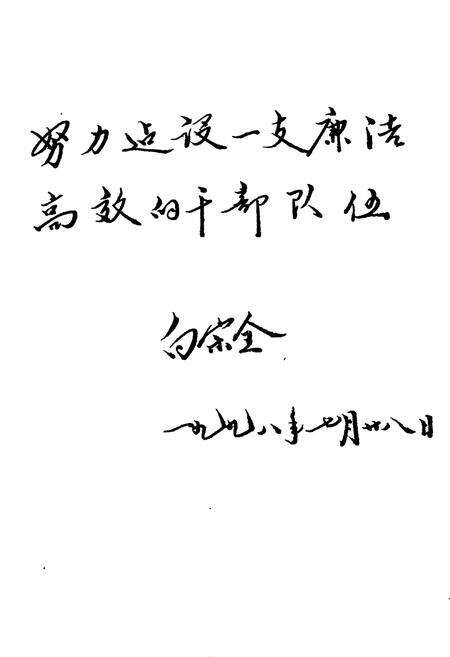 努力建设一支廉洁
高效的干部队伍
白宗全
一九九八年七月廿八日